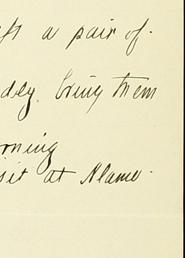 a pair of
bring them
rning
sit at Alame